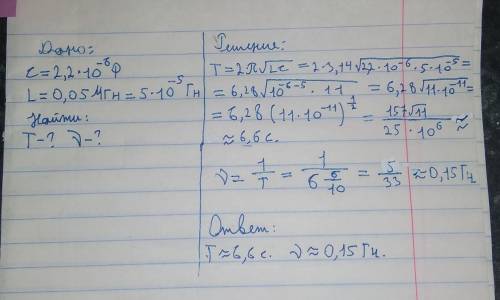 Дано:
C = 2,2·10⁻⁶ Ф
L = 0,05 МГн = 5·10⁻⁵ Гн
Найти:
T-? ν-?
Решение:
T = 2π√Lc = 2·3,14√2,2·10⁻⁶·5·10⁻⁵ =
= 6,28√10⁻⁶⁻⁵·11 = 6,28√11·10⁻¹¹ =
= 6,28(11·10⁻¹¹)^½ = 157√11/25·10⁶ ≈
≈ 6,6 с.
ν = 1/T = 1/6 6/10 = 5/33 ≈ 0,15 Гц
Ответ:
T ≈ 6,6 с. ν ≈ 0,15 Гц.